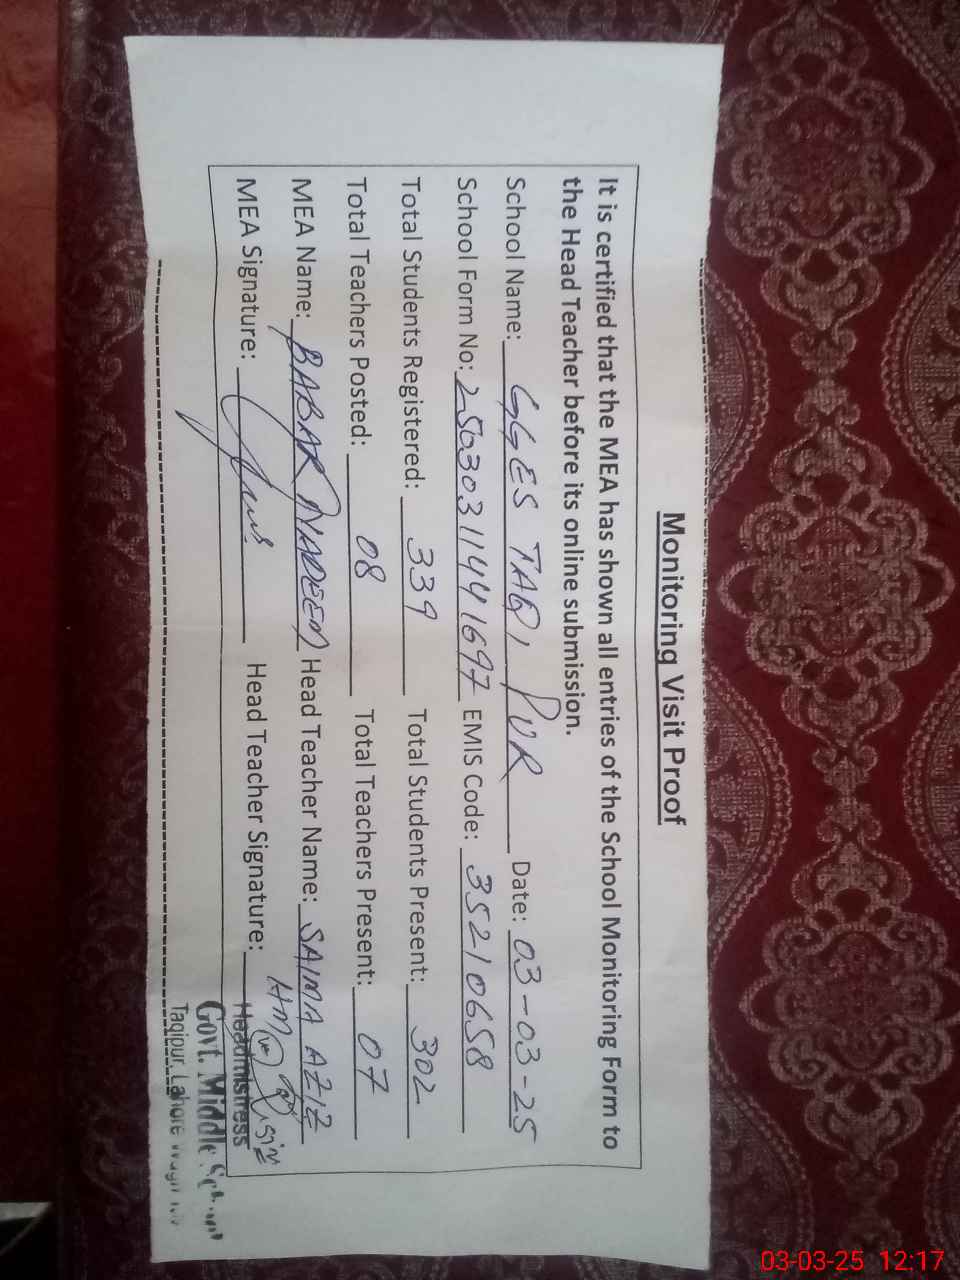 Monitoring Visit Proof
It is certified that the MEA has shown all entries of the School Monitoring Form to
the Head Teacher before its online submission.
School Name: GGES TAQI PUR Date: 03-03-25
School Form No: 25030311441697 EMIS Code: 35210658
Total Students Registered: 339 Total Students Present: 302
Total Teachers Posted: 08 Total Teachers Present: 07
MEA Name: BABAR NADEEM Head Teacher Name: SAIMA AZIZ
MEA Signature: Head Teacher Signature: HM
Headmistress
Govt. Middle School
Taqipur, Lahore
03-03-25 12:17